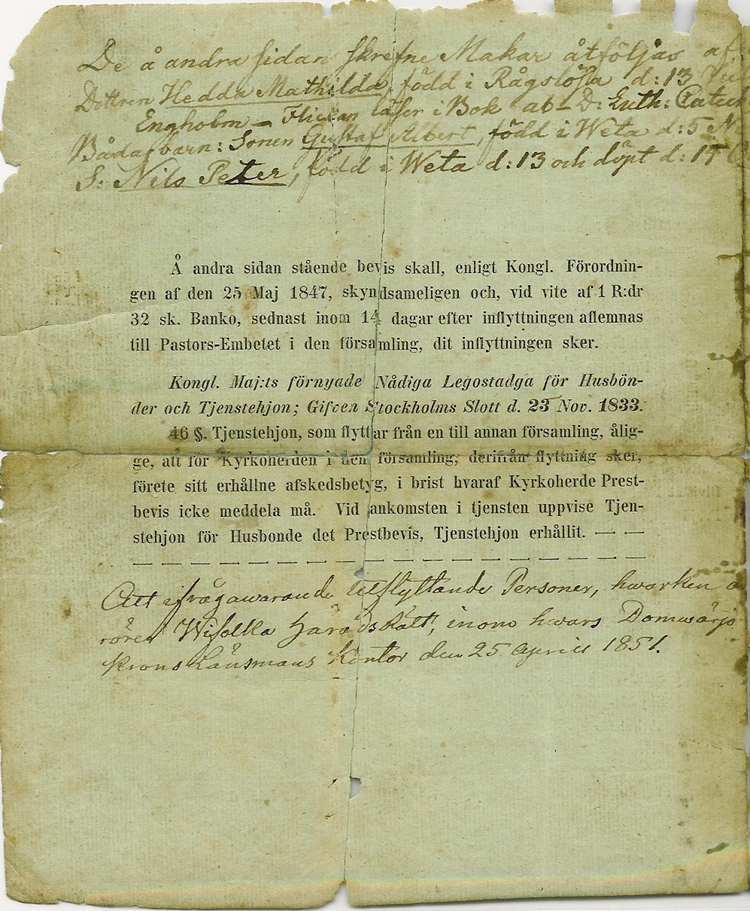 De å andra sidan skrefne Makar åtföljas af
Dottren Hedda Mathilda, född i Rågslösa d: 13
Engholm – Flickan läser i Bok ab – D: Luth: Catech
Båda barn: Sonen Gustaf Albert, född i Weta d: 5 N
S: Nils Peter, född i Weta d: 13 och döpt d: 15
Å andra sidan stående bevis skall, enligt Kongl. Förordnin-
gen af den 25 Maj 1847, skyndsameligen och, vid vite af 1 R:dr
32 sk. Banko, sednast inom 14 dagar efter inflyttningen aflemnas
till Pastors-Embetet i den församling, dit inflyttningen sker.
Kongl. Maj:ts förnyade Nådiga Legostadga för Husbön-
der och Tjenstehjon; Gifven Stockholms Slott d. 23 Nov. 1833.
46 §. Tjenstehjon, som flyttar från en till annan församling, ålig-
ge, att för Kyrkoherden i den församling, derifrån flyttning sker,
förete sitt erhållne afskedsbetyg, i brist hvaraf Kyrkoherde Prest-
bevis icke meddela må. Vid ankomsten i tjensten uppvise Tjen-
stehjon för Husbonde det Prestbevis, Tjenstehjon erhållit. — —
Att ifrågawarande utflyttande Personer, hwarken
rörer Wifolka Häradsrätt, inom hwars Domwärjo
Krono Länsmans Kontor den 25 April 1851.